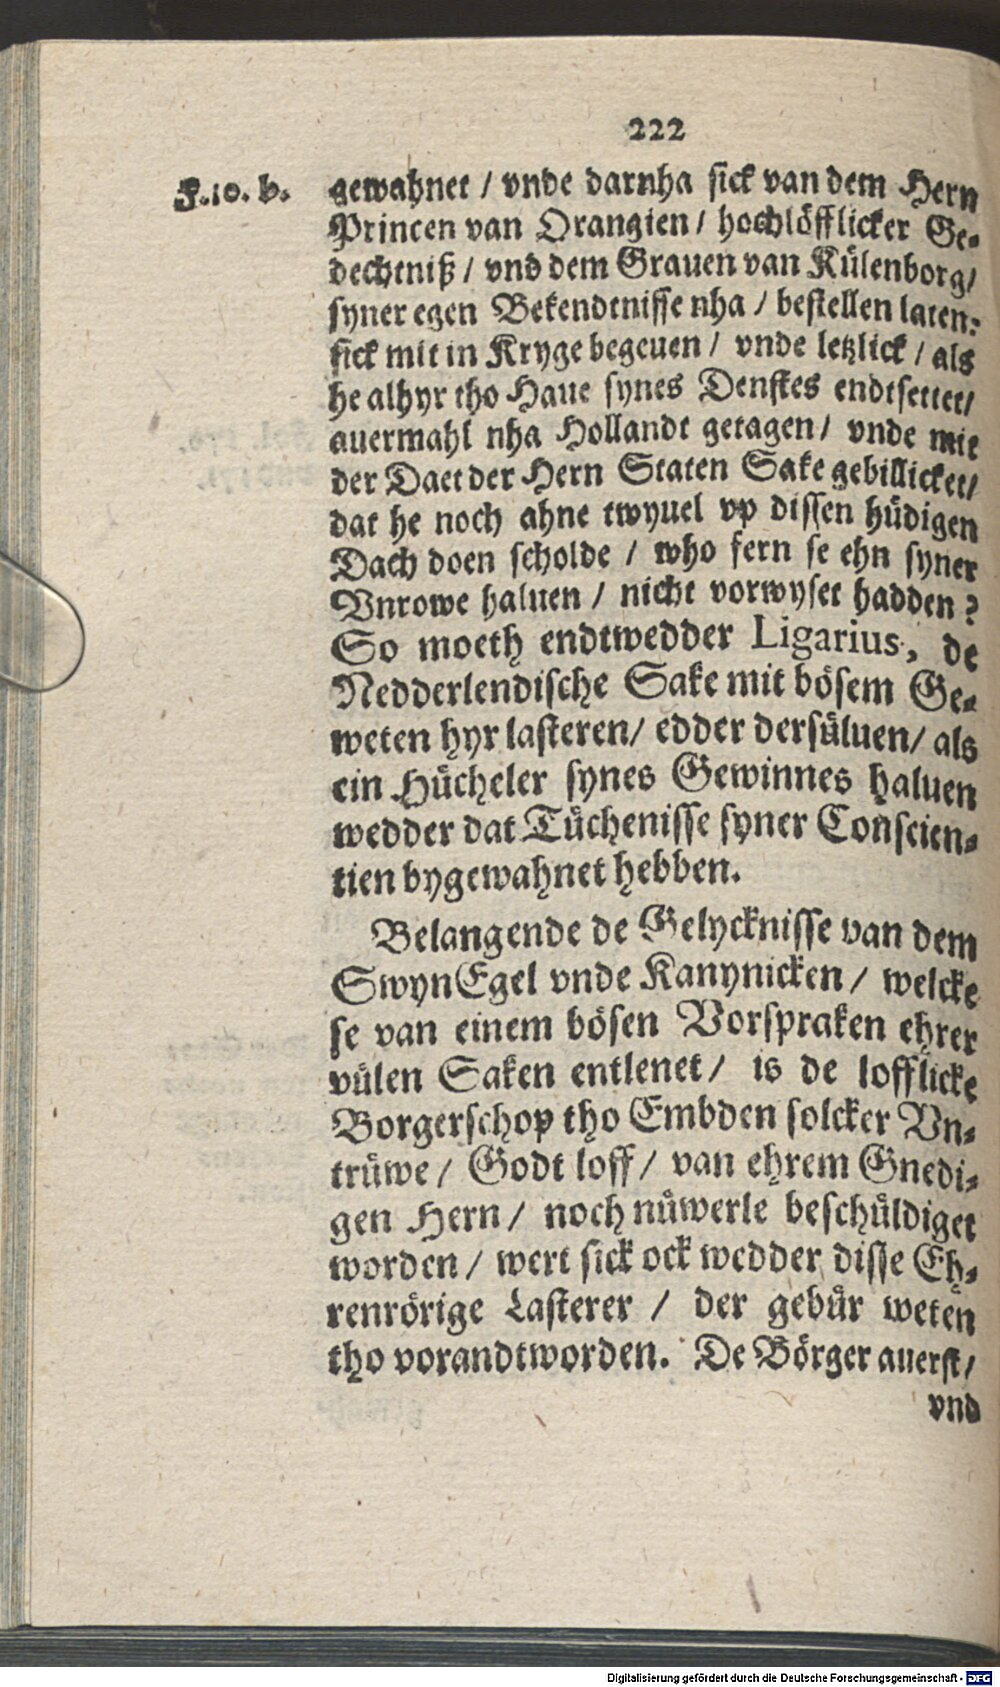 222
F.10. b.
gewahnet / vnde darnha sick van dem Hern
Princen van Orangien / hochlöfflicker Ge-
dechtniß / vnd dem Grauen van Külenborg /
syner egen Bekendtnisse nha / bestellen laten:
sick mit in Kryge begeuen / vnde letzlick / als
he alhyr tho Haue synes Denstes endtsettet /
auermahl nha Hollandt getagen / vnde mit
der Daet der Hern Staten Sake gebillicket /
dat he noch ahne twyuel vp dissen hüdigen
Dach doen scholde / who fern se ehn syner
Vnrowe haluen / nicht vorwyset hadden ?
So moeth endtwedder Ligarius, de
Nedderlendische Sake mit bösem Ge-
weten hyr lasteren / edder dersüluen / als
ein Hücheler synes Gewinnes haluen
wedder dat Tüchenisse syner Conscien-
tien bygewahnet hebben.
Belangende de Gelycknisse van dem
SwynEgel vnde Kanynicken / welcke
se van einem bösen Vorspraken ehrer
vülen Saken entlenet / is de lofflicke
Borgerschop tho Embden solcker Vn-
trüwe / Godt loff / van ehrem Gnedi-
gen Hern / noch nüwerle beschüldiget
worden / wert sick ock wedder disse Eh-
renrörige Lasterer / der gebür weten
tho vorandtworden. De Börger auerst /
vnd
Digitalisierung gefördert durch die Deutsche Forschungsgemeinschaft - DFG